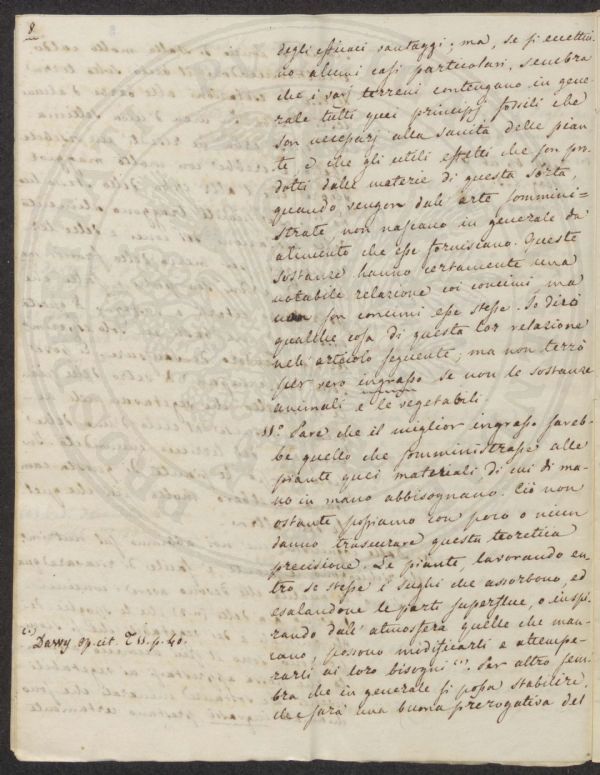 8
degli efficaci vantaggi; ma, se si eccettui-
no alcuni casi particolari, sembra
che i varj terreni contengano in gene-
rale tutti quei principj fossili che
son necessarj alla sanità delle pian-
te, e che gli utili effetti che son pro-
dotti dalle materie di questa sorta,
quando vengon dall' arte sommini=
strate non nascano in generale da
alimento che esse forniscano. Queste
sostanze hanno certamente una
notabile relazione coi concimi, ma
non son concimi esse stesse. Io dirò
qualche cosa di questa lor relazione
nell' articolo seguente; ma non terrò
per vero ingrasso se non le sostanze
animali e le vegetabili.
11.° Pare che il miglior ingrasso sareb-
be quello che somministrasse alle
piante quei materiali di cui di ma-
no in mano abbisognano. Ciò non
ostante possiamo con poco o niun
danno trascurare questa teoretica
precisione. Le piante, lavorando en-
tro se stesse i sughi che assorbono, ed
esalandone le parti superflue, o inspi-
rando dall' atmosfera quelle che man-
cano, possono modificarli e attempe-
rarli ai loro bisogni (1). Per altro sem-
bra che in generale si possa stabilire,
che sarà una buona prerogativa del
(1) Davvy op. cit. T. II. p. 40.